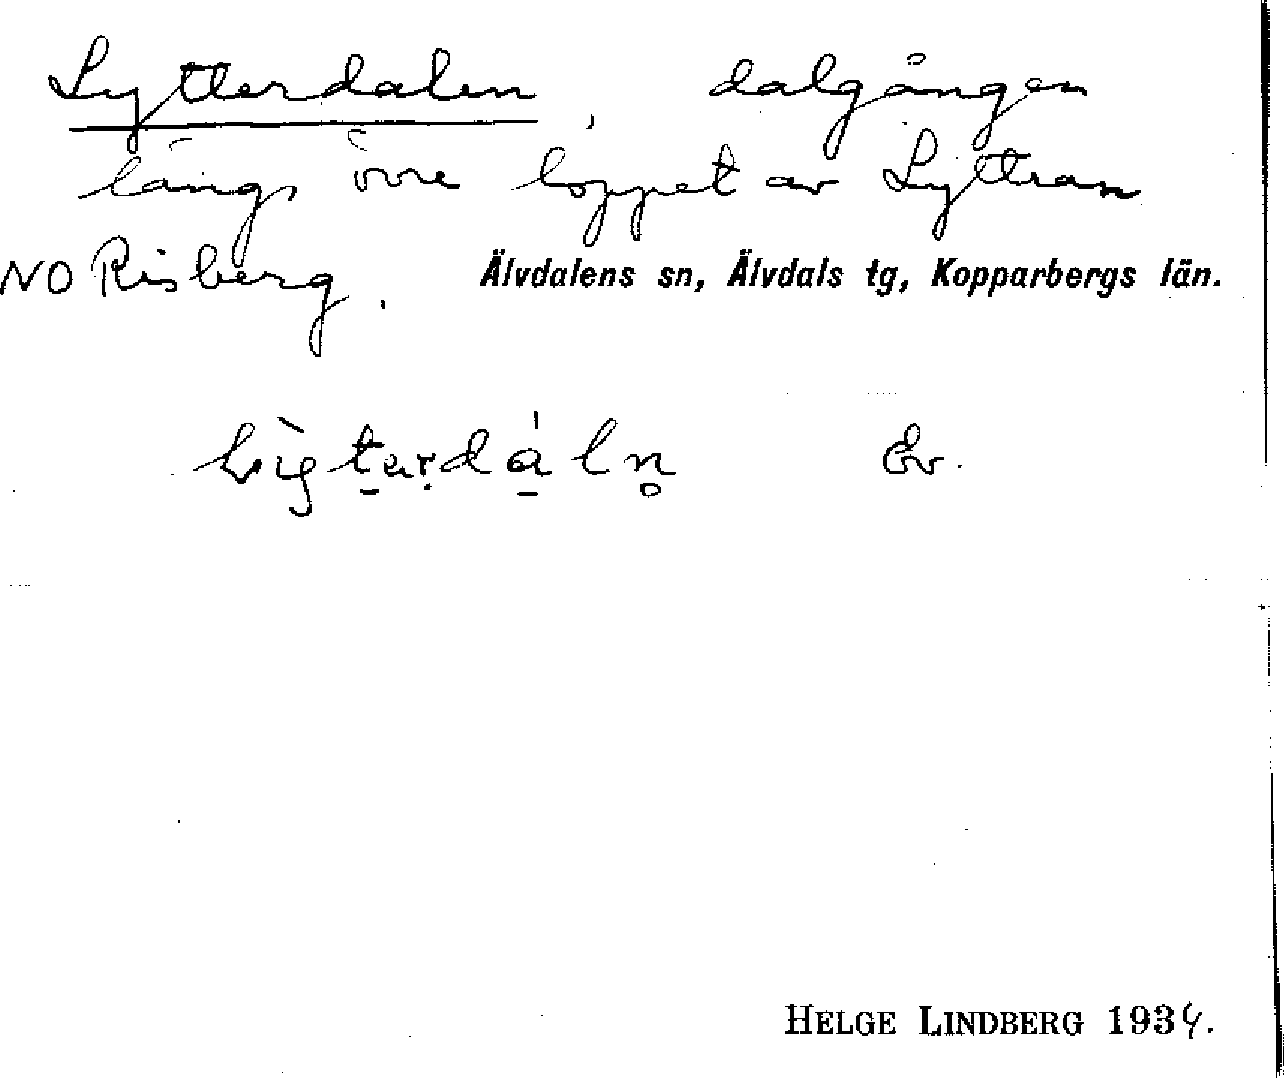 Lytterdalen, dalgången
längs övre loppet av Lyttran
NO Risberg. Älvdalens sn, Älvdals tg, Kopparbergs län.
Ev.
HELGE LINDBERG 1934.